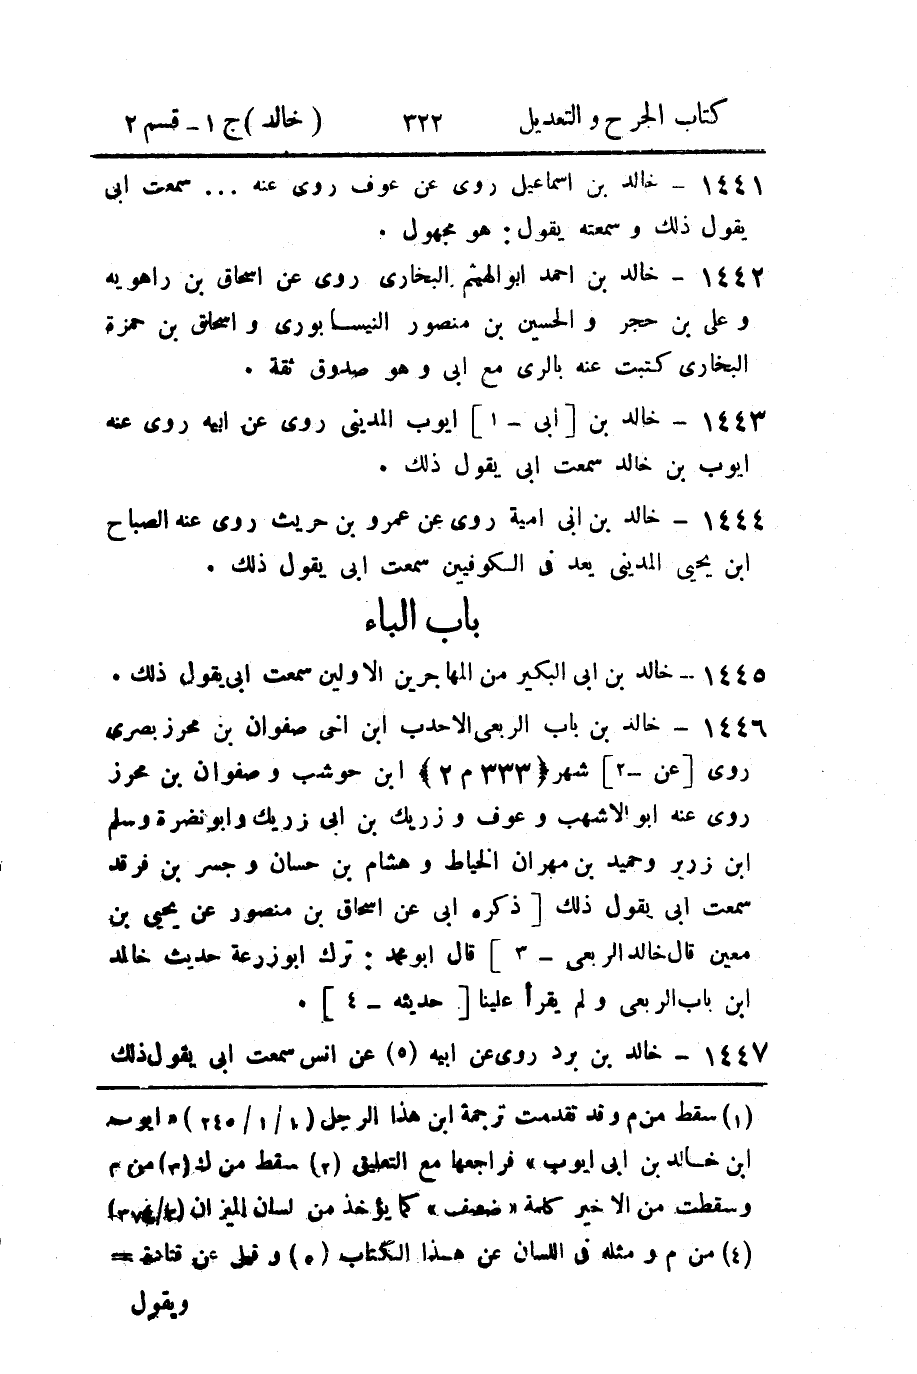 كتاب الجرح والتعديل ٣٢٢ ( خالد ) ج ١ - قسم ٢
١٤٤١ - خالد بن اسماعيل روى عن عوف روى عنه ... سمعت ابى
يقول ذلك و سمعته يقول : هو مجهول .
١٤٤٢ - خالد بن احمد ابوالهيثم البخارى روى عن اسحاق بن راهويه
و على بن حجر و الحسين بن منصور النيسابورى و اسحاق بن حمزة
البخارى كتبت عنه بالرى مع ابى و هو صدوق ثقة .
١٤٤٣ - خالد بن [ ابى - ١ ] ايوب المدينى روى عن ابيه روى عنه
ايوب بن خالد سمعت ابى يقول ذلك .
١٤٤٤ - خالد بن ابى امية روى عن عمرو بن حريث روى عنه الصباح
ابن يحيى المدينى يعد فى الكوفيين سمعت ابى يقول ذلك .
باب الباء
١٤٤٥ - خالد بن ابى البكير من المهاجرين الاولين سمعت ابى يقول ذلك .
١٤٤٦ - خالد بن باب الربعى الاحدب ابن اخى صفوان بن محرز بصرى
روى [ عن - ٢ ] شهر ( ٣٣٣ م ٢ ) ابن حوشب و صفوان بن محرز
روى عنه ابو الاشهب و عوف و زريك بن ابى زريك وابو نضرة و سلم
ابن زرير وحميد بن مهران الخياط و هشام بن حسان و جسر بن فرقد
سمعت ابى يقول ذلك [ ذكره ابى عن اسحاق بن منصور عن يحيى بن
معين قال خالد الربعى - ٣ ] قال ابو محمد : ترك ابوزرعة حديث خالد
ابن باب الربعى و لم يقرأ علينا [ حديثه - ٤ ] .
١٤٤٧ - خالد بن برد روى عن ابيه (٥) عن انس سمعت ابى يقول ذلك
(١) سقط من م و قد تقدمت ترجمة ابن هذا الرجل ( ١/١/٢٤٥ ) « ايوب
ابن خالد بن ابى ايوب » فراجعها مع التعليق (٢) سقط من ك (٣) من م
و سقطت من الاخير كلمة « ضعيف » كما يؤخذ من لسان الميزان
(٤) من م و مثله فى اللسان عن هذا الكتاب (٥) و قيل عن قتادة =
ويقول